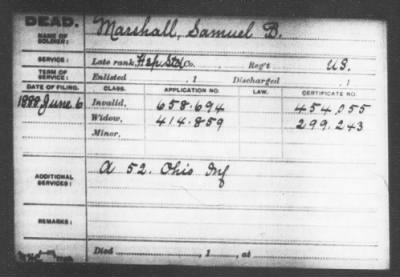 DEAD.
NAME OF SOLDIER: Marshall, Samuel B.
SERVICE: Late rank, Hsp. Std Co. Reg't U.S.
TERM OF SERVICE: Enlisted , 1 Discharged , 1
DATE OF FILING. CLASS. APPLICATION NO. LAW. CERTIFICATE NO.
1888 June 6 Invalid, 658.694 454.055
Widow, 414.859 299.243
Minor,
ADDITIONAL SERVICES: A 52. Ohio Inf
REMARKS:
Died , 1 , at